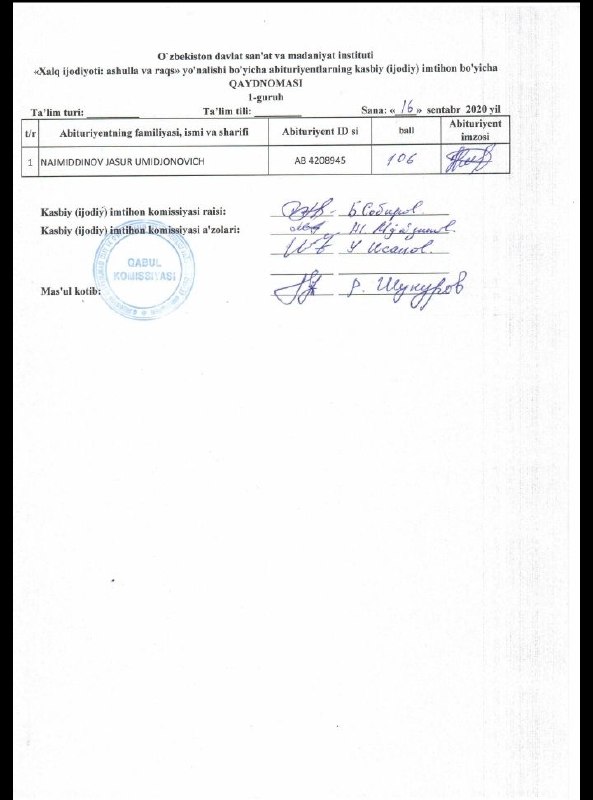 O`zbekiston davlat san'at va madaniyat instituti
«Xalq ijodiyoti: ashulla va raqs» yo'nalishi bo'yicha abituriyentlarning kasbiy (ijodiy) imtihon bo'yicha
QAYDNOMASI
1-guruh
Ta'lim turi: Ta'lim tili: Sana: «16» sentabr 2020 yil
t/r Abituriyentning familiyasi, ismi va sharifi Abituriyent ID si ball Abituriyent imzosi
1 NAJMIDDINOV JASUR UMIDJONOVICH AB 4208945 106
Kasbiy (ijodiy) imtihon komissiyasi raisi: Б Собиров.
Kasbiy (ijodiy) imtihon komissiyasi a'zolari:
У Исаков.
QABUL
KOMISSIYASI
Mas'ul kotib: Р. Шукуров